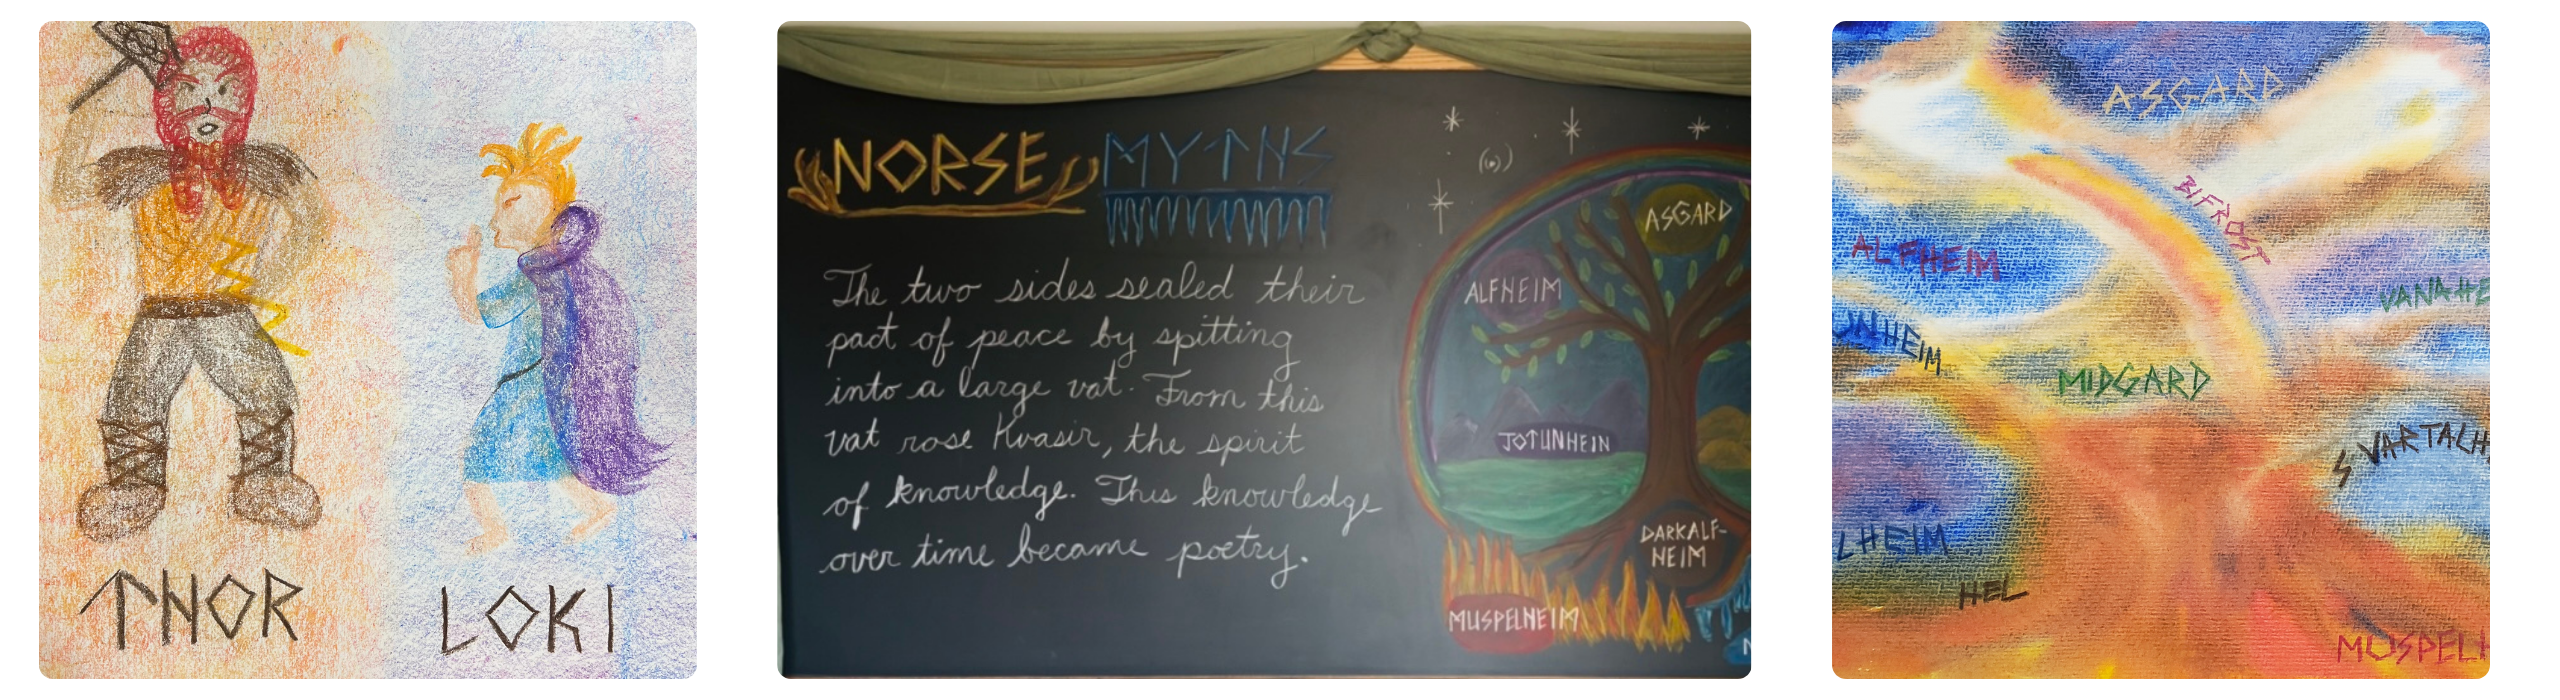 THOR
LOKI
NORSE MYTHS
The two sides sealed their
pact of peace by spitting
into a large vat. From this
vat rose Kvasir, the spirit
of knowledge. This knowledge
over time became poetry.
ASGARD
ALFHEIM
JOTUNHEIN
DARKALF-
HEIM
MUSPELHEIM
N
ASGARD
BIFROST
ALFHEIM
VANAHE
UNHEIM
MIDGARD
SVARTALH
LHEIM
HEL
MUSPELH